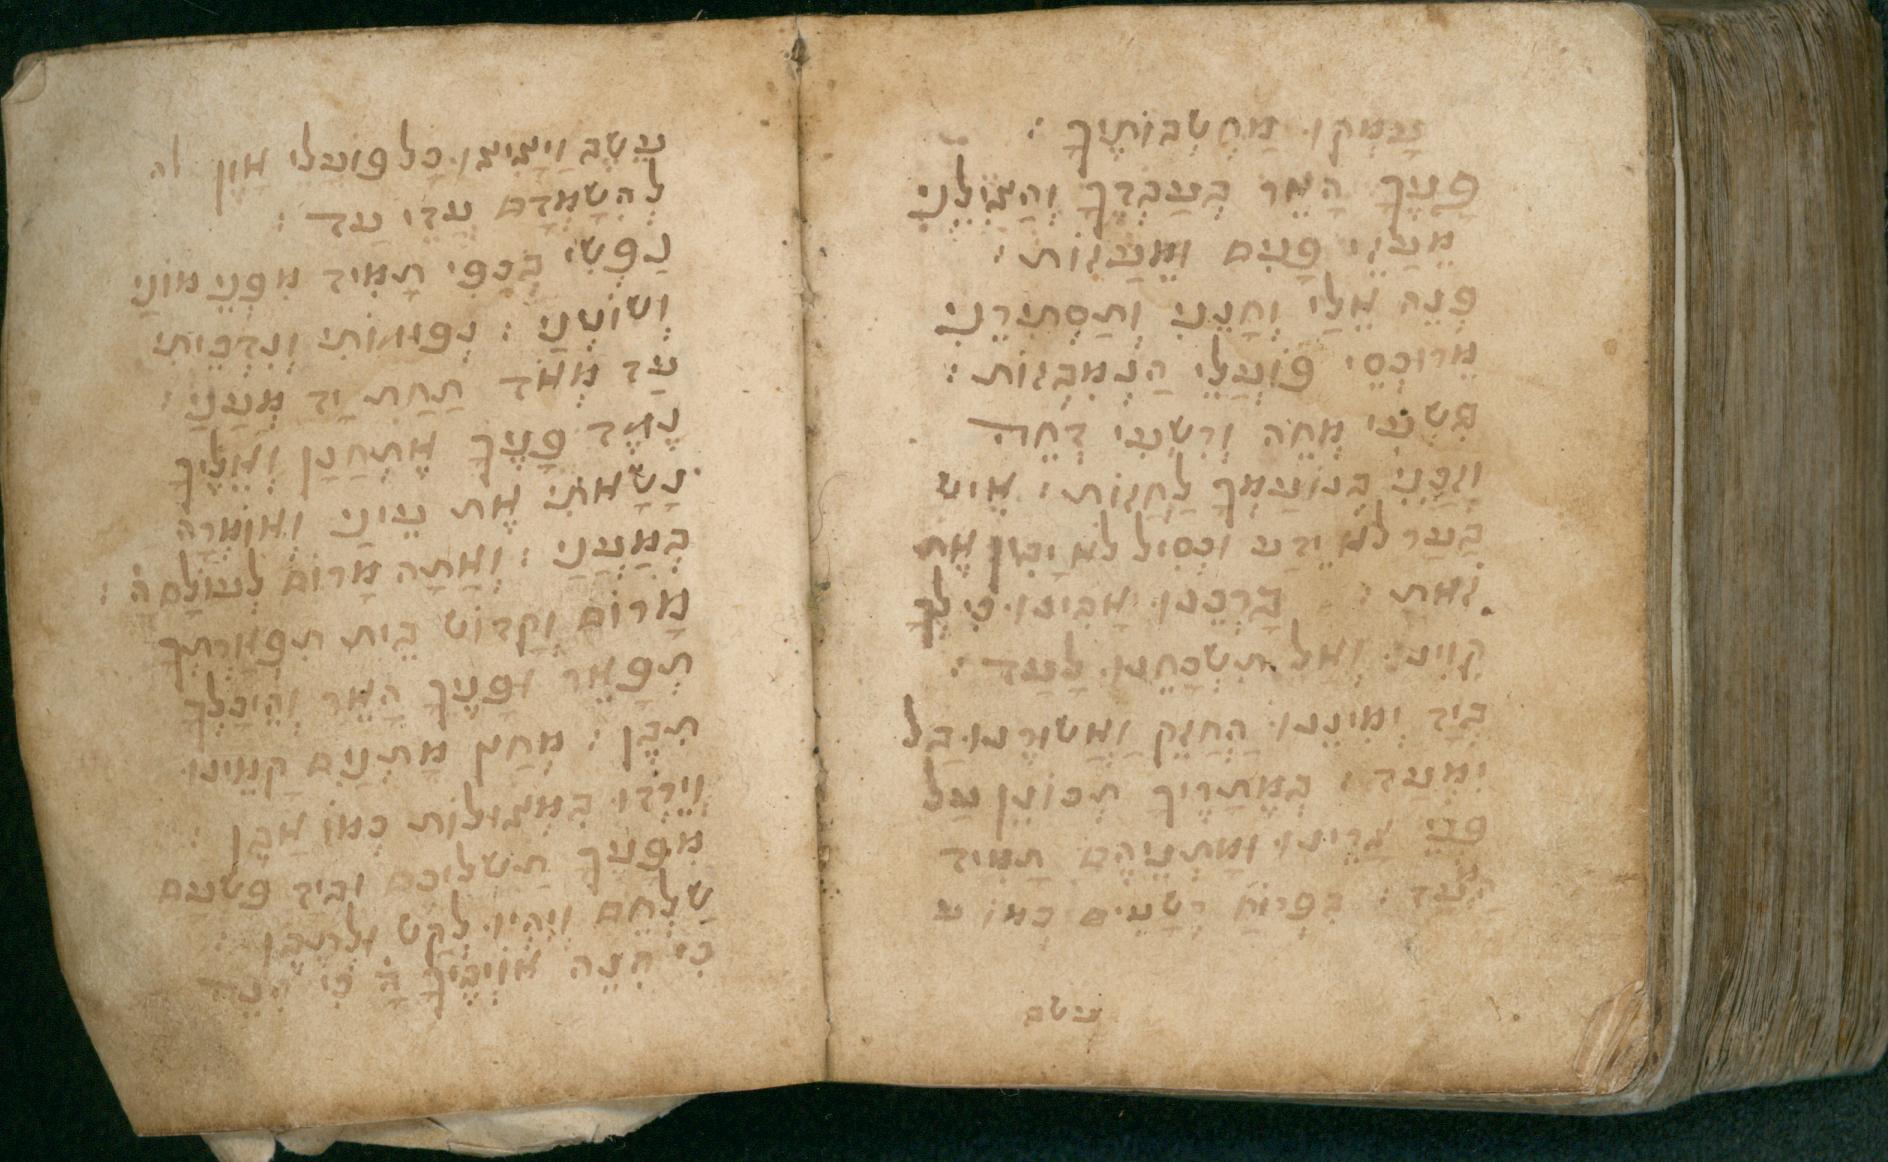 עָמְקוּ מַחְשְבוֹתֶיךָ :
פָּנֶיךָ הָאֵר בְּעַבְדֶךָ וְהַצִילֵנִי
מֵעַזֵי פָנִים וּמֵעַזוֹת :
פְּנֵה אֵלַי וְחָנֵנִי וְתַסְתִירֵנִי
מֵרוּכְסֵי פוֹעֲלֵי הַנִמְבְזוֹת :
פִּשְעִי מְחֵה וְרִשְעִי דְחֵה
וְזַכֵּנִי בְּנוֹעַמְךָ לַחֲזוֹת : אִיש
בַּעַר לֹא יֵדַע וּכְסִיל לֹא יָבִין אֶת
זֹאת : בָּרְכֵנוּ אָבִינוּ כִּי לְךָ
קִוִינוּ וְאַל תִשְכָּחֵנוּ לָעַד :
בְּיַד יְמִינֵנוּ הַחֲזֵק וַאֲשוּרֵנוּ בַּל
יִמְעַד : בְּמֵתָרֶיךָ תְכוֹנֵן עַל
פְּנֵי צָרֵינוּ וּמָתְנֵיהֶם תָמִיד
הַמְעַד : בִּפְרוֹחַ רְשָעִים כְּמוֹ ע
עשב
עֵשֶב וַיָצִיצוּ כָּל פוֹעֲלֵי אָוֶן לה
לְהִשָמְדָם עֲדֵי עַד :
נַפְשִי בְכַפִּי תָמִיד מִפְּנֵי מוֹנַי
וְשוֹטְנַי : נְפוּגוֹתִי וְנִדְכֵּיתִי
עַד מְאֹד תַחַת יַד מְעַנַי :
נֶגֶד פָּנֶיךָ אֶתְחַנַן וְאֵלֶיךָ
נָשָאתִי אֶת עֵינַי וְאוֹמְרָה
בְּמַעֲנַי : וְאַתָה מָרוֹם לְעוֹלָם הׄ :
מָרוֹם וְקָדוֹש בֵּית תִפְאַרְתֶךָ
תְפָאֵר וּפָנֶיךָ הָאֵר וְהֵיכָלְךָ
תִבֶן : מְחַץ מָתְנַיִם קָמֵינוּ
וְיֵרְדוּ בִּמְצוּלוֹת כְּמוֹ אָבֶן :
מִפָּנֶיךָ תַשְלִיכֵם וּבְיַד פִּשְעָם
שַלְחֵם וְיִהְיוּ לְקַש וּלְתֶבֶן :
כִּי הִנֵה אוֹיְבֶיךָ הׄ כִּי הִנֵה